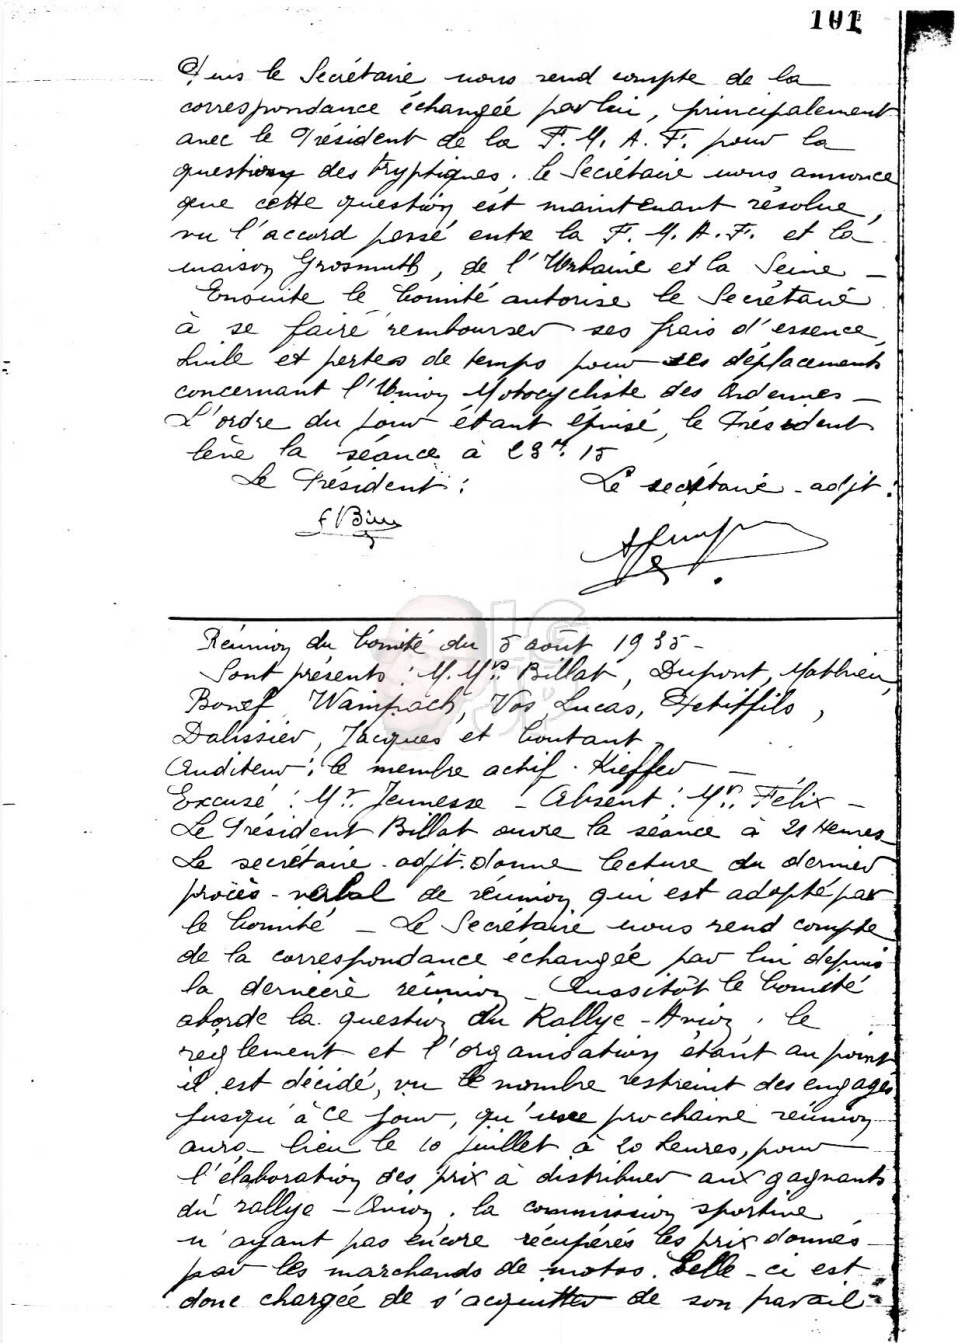 101
Puis le Secrétaire nous rend compte de la
correspondance échangée par lui, principalement
avec le Président de la F. M. A. F. pour la
question des tryptiques. le Secrétaire nous annonce
que cette question est maintenant résolue,
vu l'accord passé entre la F. M. A. F. et la
maison Grosmuth, de l'Urbaine et la Seine –
Ensuite le Comité autorise le Secrétaire
à se faire rembourser ses frais d'essence,
huile et pertes de temps pour ses déplacements
concernant l'Union Motocycliste des Ardennes –
L'ordre du jour étant épuisé, le Président
lève la séance à 23h. 15
Le Président : Le secrétaire - adjt :
Réunion du Comité du 5 août 1935 -
Sont présents : M.Mrs Billat, Dupont, Mathieu,
Bonef, Wampach, Vos Lucas, Petitfils,
Dalissier, Jacques et Coutant
Auditeur : le membre actif. Kieffer –
Excusé : Mr. Jeunesse – Absent : Mr. Félix –
Le Président Billat ouvre la séance à 21 Heures
Le secrétaire - adjt. donne lecture du dernier
procès - verbal de réunion qui est adopté par
le Comité – Le Secrétaire nous rend compte
de la correspondance échangée par lui depuis
la dernière réunion – Aussitôt le Comité
aborde la question du Rallye - Avion. le
règlement et l'organisation étant au point
il est décidé, vu le nombre restreint des engagés
jusqu'à ce jour, qu'une prochaine réunion
aura lieu le 10 juillet à 20 heures, pour
l'élaboration des prix à distribuer aux gagnants
du rallye - Avion. la commission sportive
n'ayant pas encore récupérés les prix donnés
par les marchands de motos. Celle - ci est
donc chargée de s'acquitter de son travail -